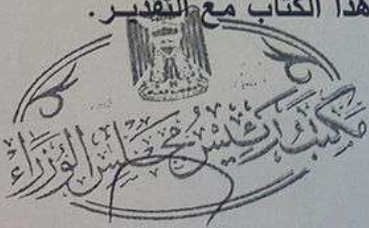 هذا الكتاب مع التقدير.
مكتب رئيس مجلس الوزراء